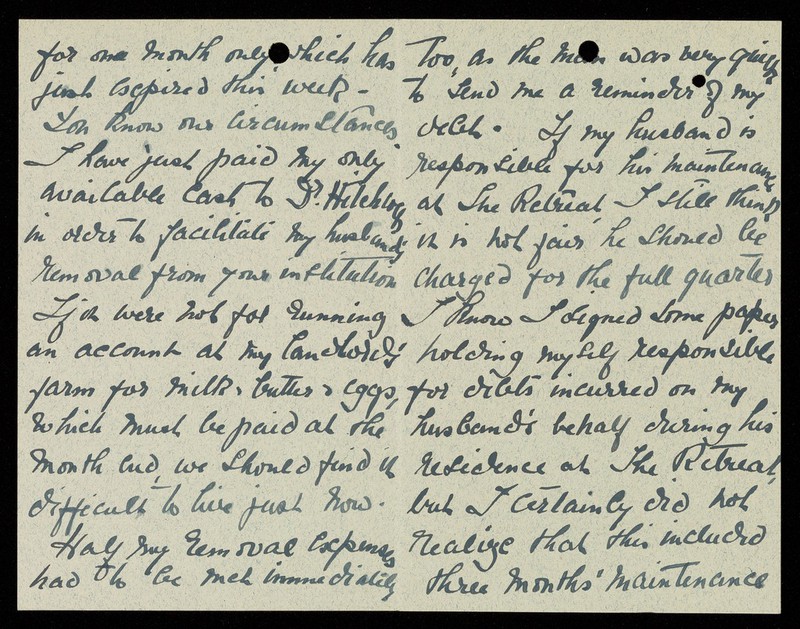 for one month only which has
just expired this week -
You know our circumstances
I have just paid my only
available cash to Dr. Hitchings
in order to facilitate my husband's
removal from your institution
If it were not for running
an account at my landlord's
farm for milk, butter & eggs,
which must be paid at the
month end, we should find it
difficult to live just now.
Half my removal expenses
had to be met immediately
too, as the man was very
to send me a reminder of my
debt. If my husband is
responsible for his maintenance
at The Retreat, I still think
it is not fair he should be
charged for the full quarter
I know I signed some paper
holding myself responsible
for debts incurred on my
husband's behalf during his
residence at The Retreat,
but I certainly did not
realize that this included
three months' maintenance